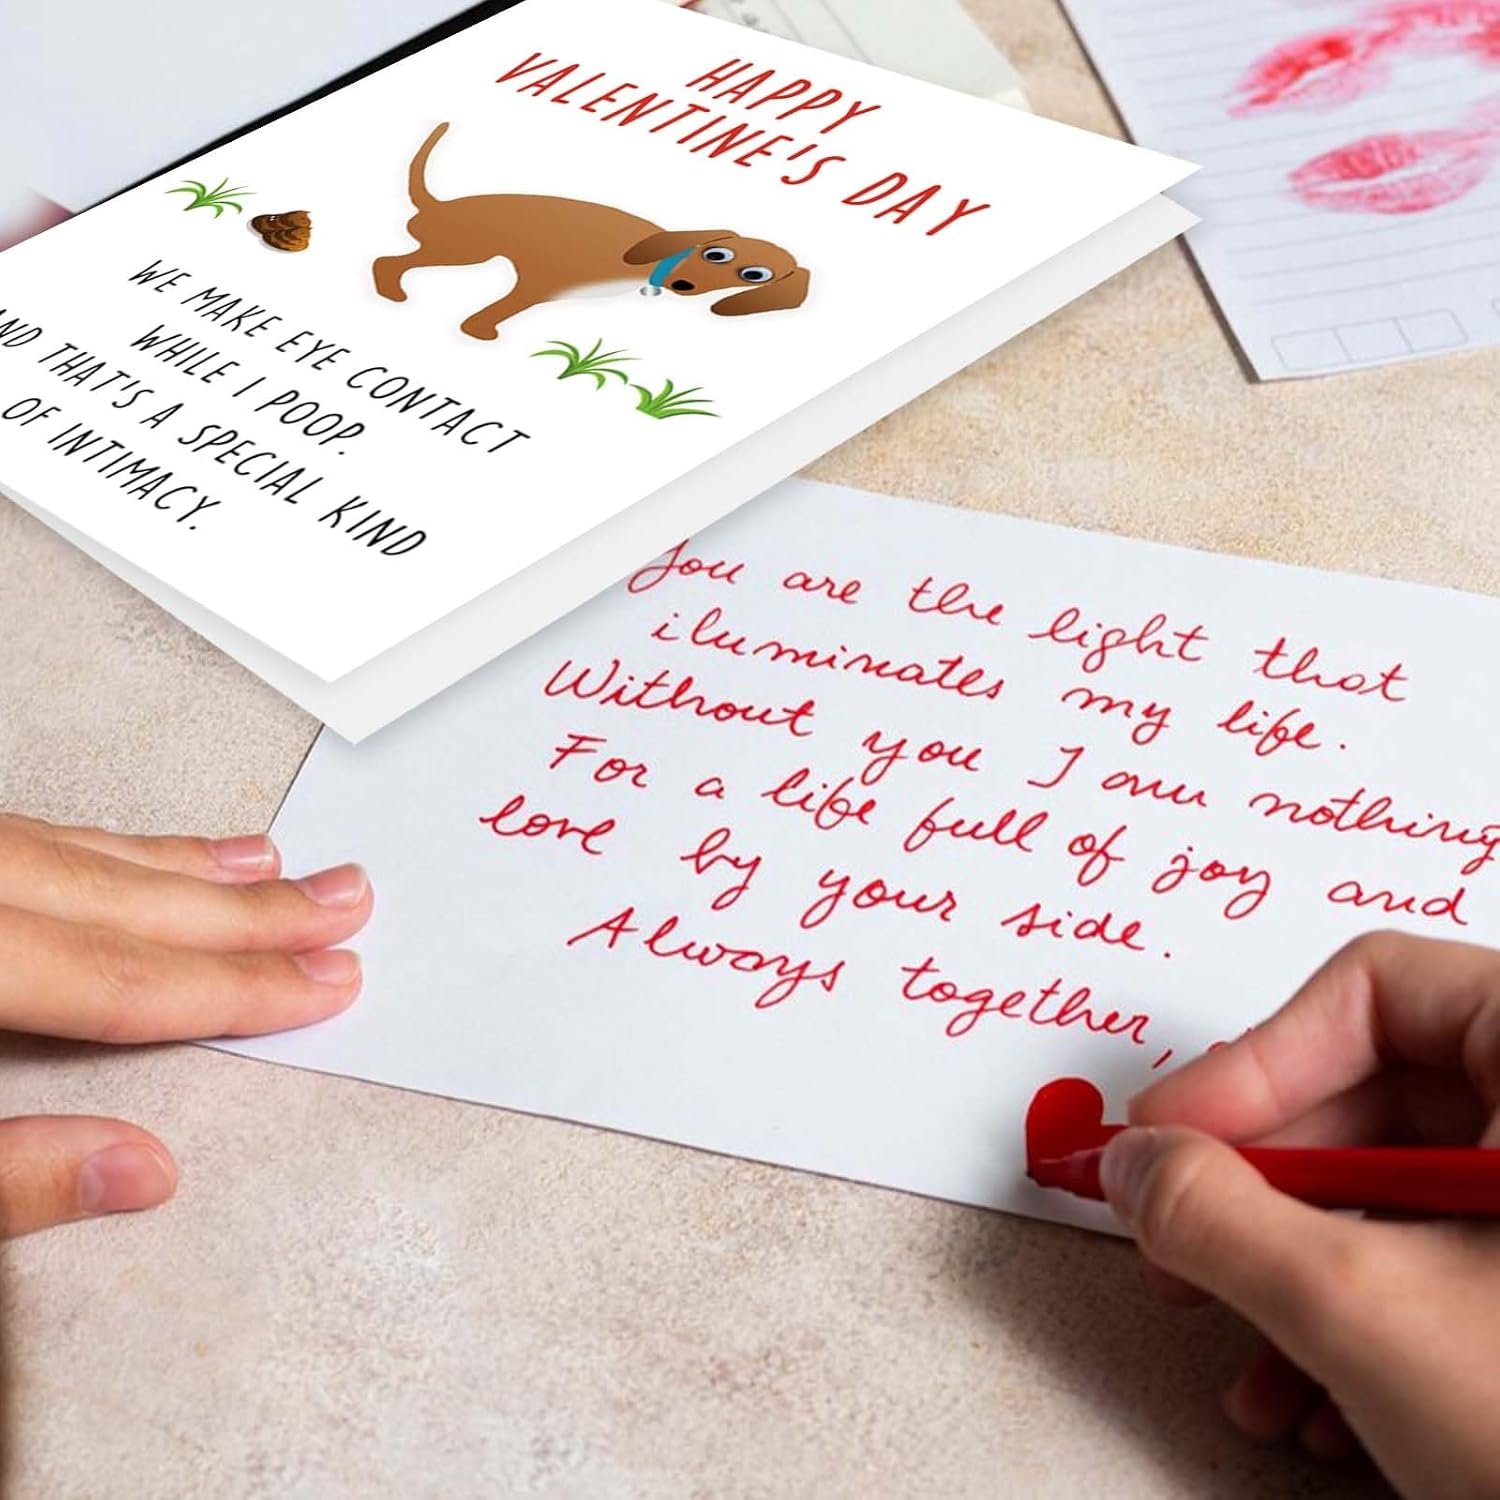 HAPPY
VALENTINE'S DAY
WE MAKE EYE CONTACT
WHILE I POOP.
AND THAT'S A SPECIAL KIND
OF INTIMACY.
You are the light that
iluminates my life.
Without you I am nothing
For a life full of joy and
love by your side.
Always together,